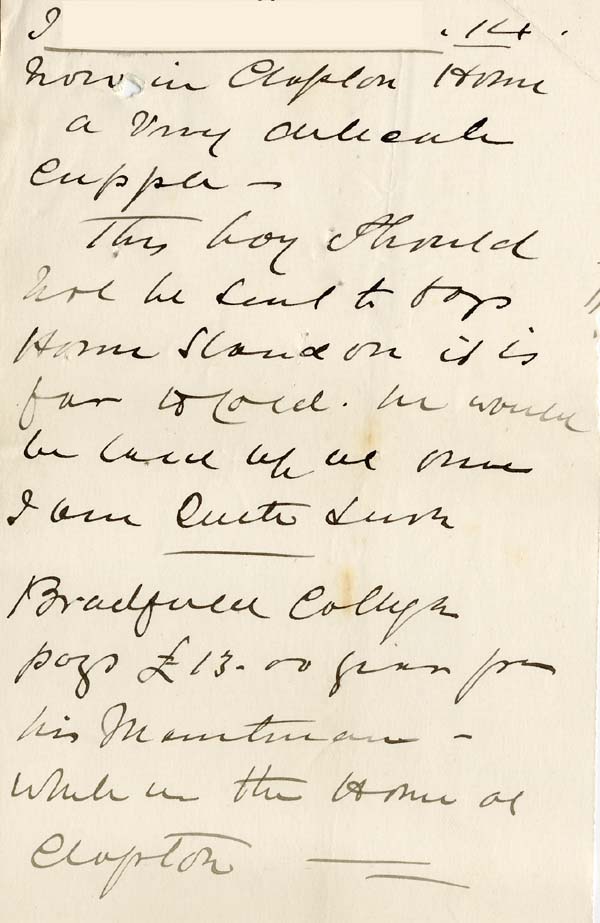 I . 14 .
now in Clapton Home
a very delicate
Cripple –
This boy should
not be sent to boys
Home Standon it is
far to cold. he would
be laid up at once
I am quite sure
Bradfield College
pays £13-00 year for
his
while in the Home at
Clapton